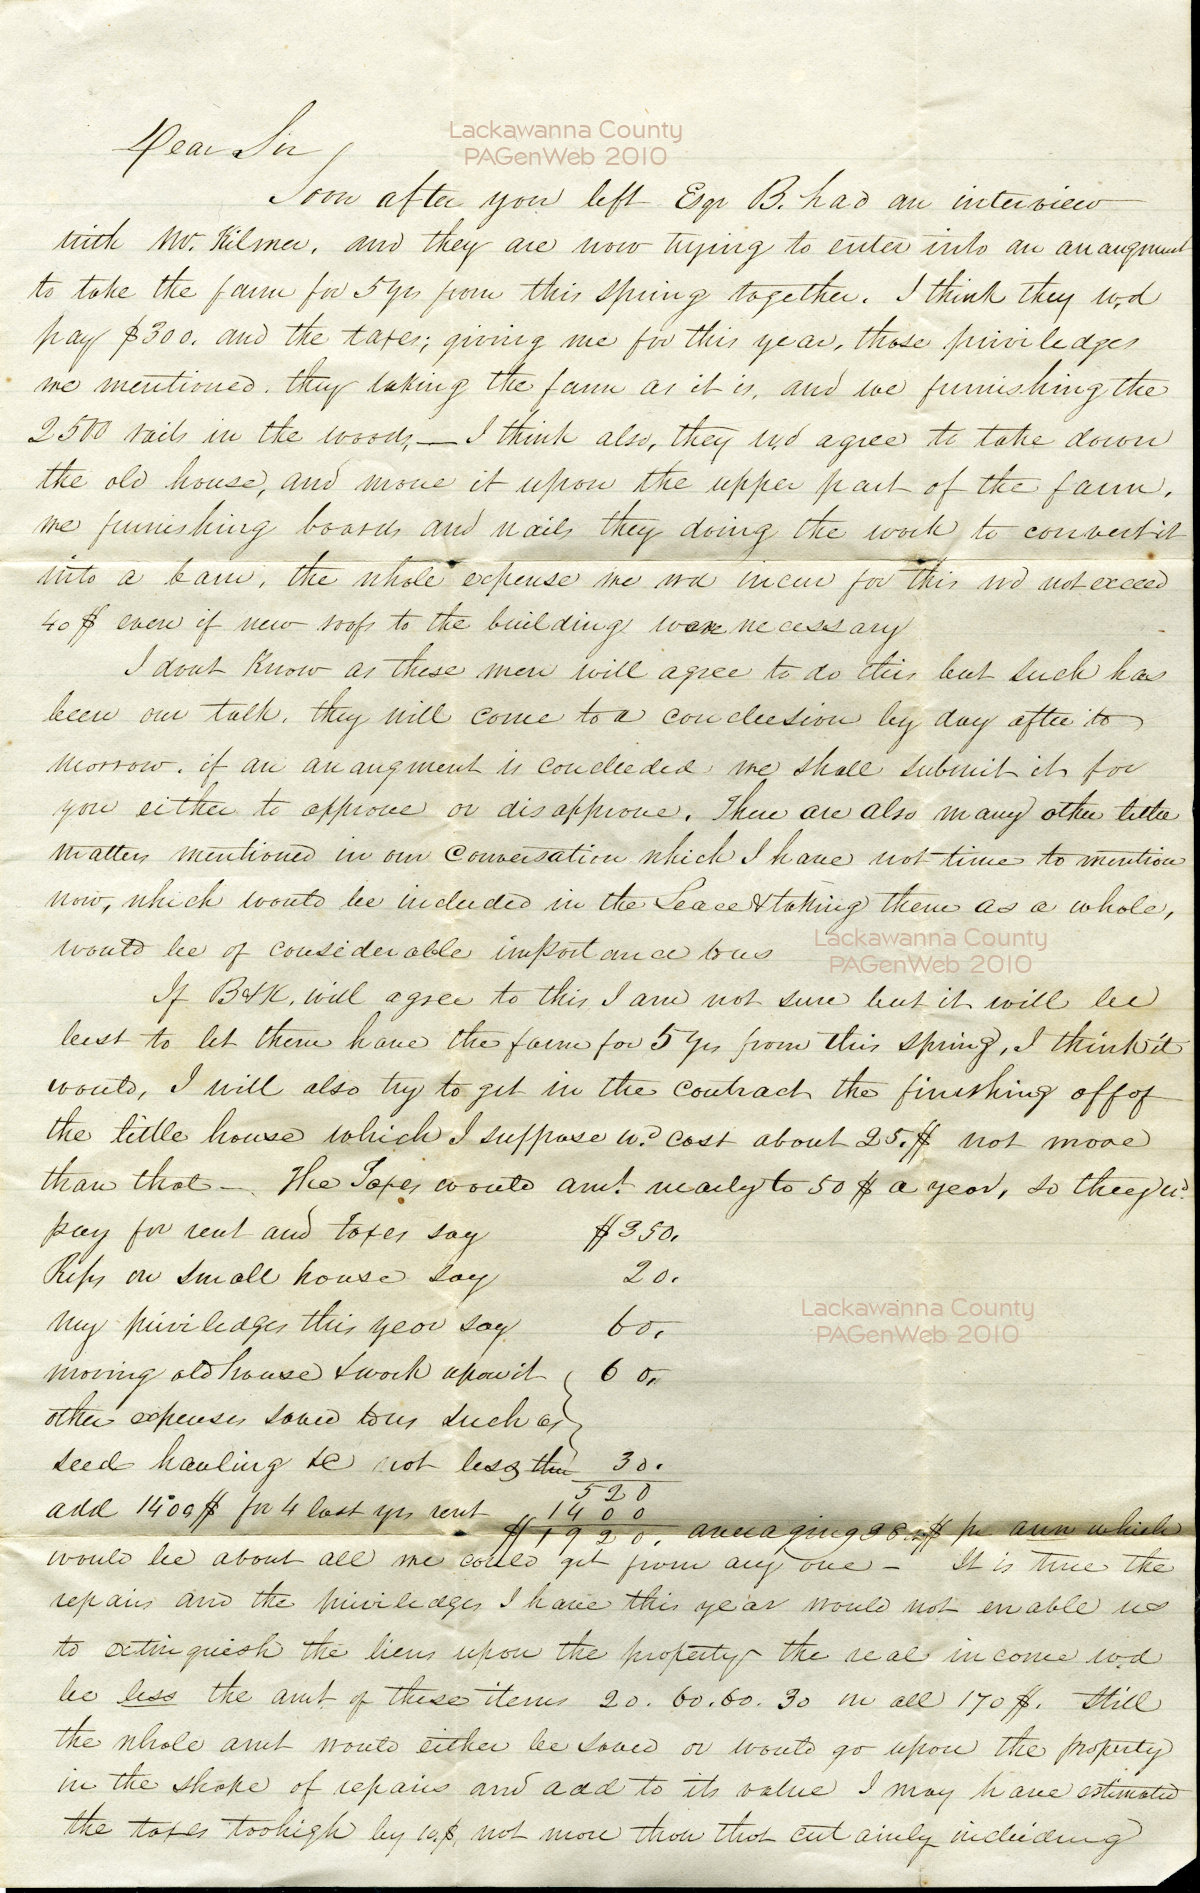 Lackawanna County
PAGenWeb 2010
Dear Sir,
Soon after you left Esqr B. had an interview
with Mr. Kilmer, and they are now trying to enter into an arraugment
to take the farm for 5 yrs from this spring together. I think they wd
pay $300. and the taxes; giving me for this year, those priviledges
we mentioned. they taking the farm as it is, and we furnishing the
2500 rails in the woods, — I think also, they wd agree to take down
the old house, and move it upon the upper part of the farm,
we furnishing boards and nails they doing the work to convert it
into a barn, the whole expense we wd incur for this wd not exceed
40$ even if new roofs to the building were necessary
I dont know as these men will agree to do this but such has
been our talk. they will come to a conclusion by day after to
morrow. if an arraugment is concluded we shall submit it for
you either to approve or disapprove. There are also many other little
matters mentioned in our conversation which I have not time to mention
now, which would be included in the Lease & taking them as a whole,
would be of considerable importance to us
Lackawanna County
PAGenWeb 2010
If B&K. will agree to this I am not sure but it will be
best to let them have the farm for 5 yrs from this spring, I think it
would, I will also try to get in the contract the finishing off of
the little house which I suppose wd cost about 25.$ not more
than that — The Taxes would amt. nearly to 50$ a year, so they wd
pay for rent and taxes say $350.
Reps on small house say 20.
My priviledges this year say 60.
Lackawanna County
PAGenWeb 2010
moving old house & work upon it 60.
other expenses saved to us such as
seed hauling &c not less than 30.
520
add 1400$ for 4 last yrs rent 1400
$1920. averaging $ pr ann which
would be about all we could get from any one — It is true the
repairs and the priviledges I have this year would not enable us
to extinguish the liens upon the property the real income wd
be less the amt of these items 20. 60. 60. 30 in all 170$. Still
the whole amt would either be saved or would go upon the property
in the shape of repairs and add to its value I may have estimated
the taxes too high by 10$, not more than that certainly including